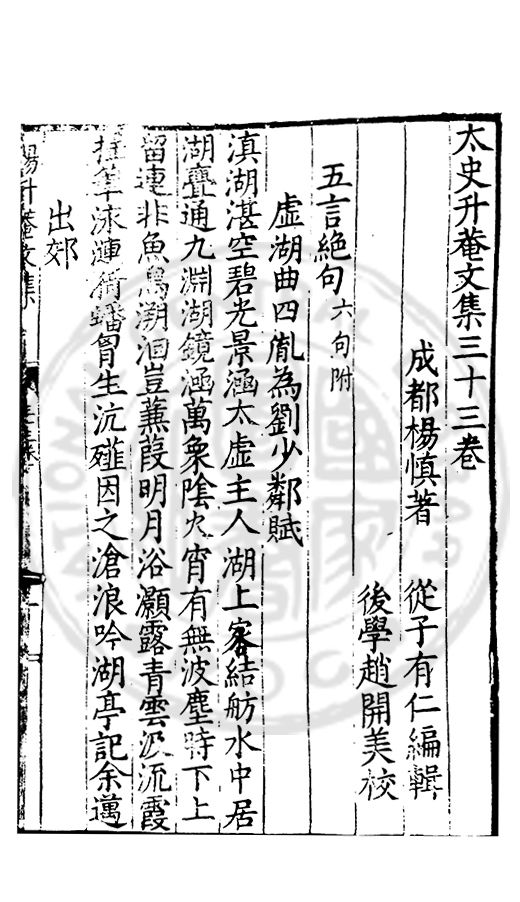 太史升菴文集三十三卷
成都楊慎著 從子有仁編輯
後學趙開美校
五言絕句 六句附
虛湖曲四胤為劉少鄰賦
滇湖湛空碧光景涵太虛主人湖上客結舫水中居
湖疊通九淵湖鏡涵萬象陰火宵有無波塵時下上
留連非魚鳥溯洄豈蒹葭明月浴灝露青雲汲流霞
泳漣蟠胷生沆瀣因之滄浪吟湖亭記余邁
出郊
楊升菴文集